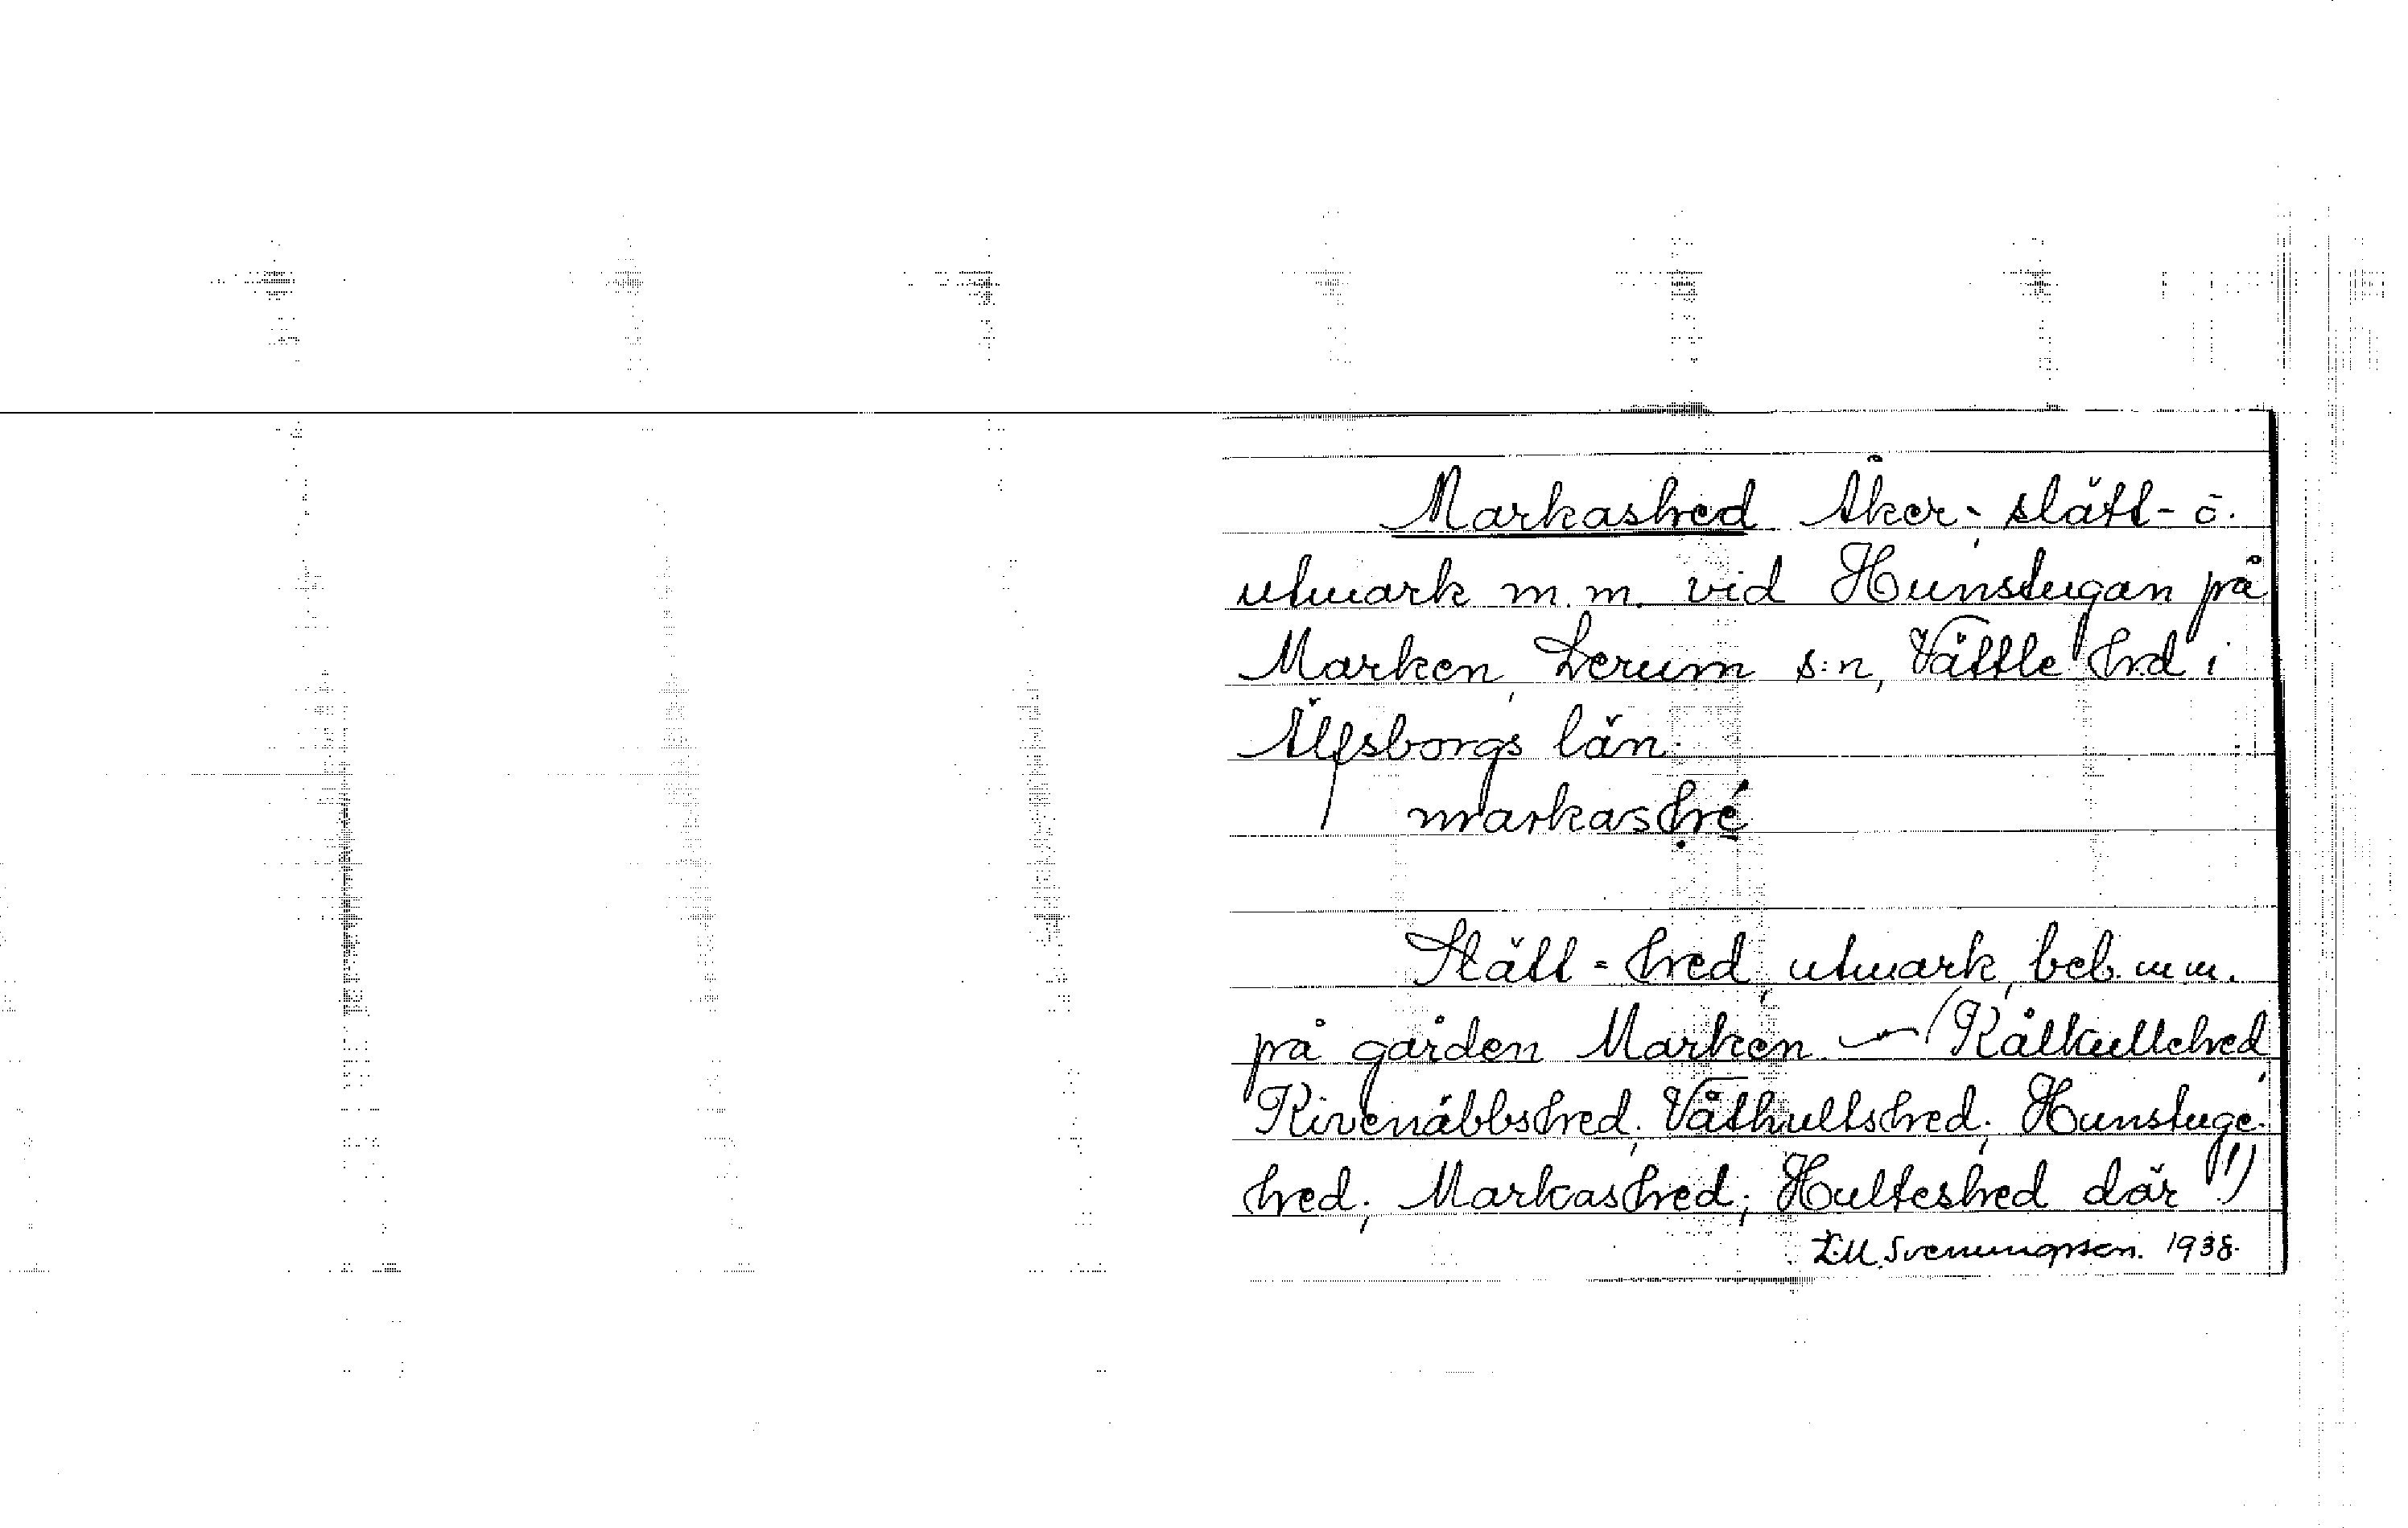 Markashed Åker- slått- o.
utmark m.m. vid Hunstugan på
Marken, Lerum s:n, Vättle hrd i
Älfsborgs län.
markashré
Slätt-hred, utmark, beb. m m.
på gården Marken — (Kålkullehred,
Rivenäbbshred; Våthultshred; Hunstuge-
hred; Markashred; Hulteshred där !!)
L.M. Svenungsson. 1938.